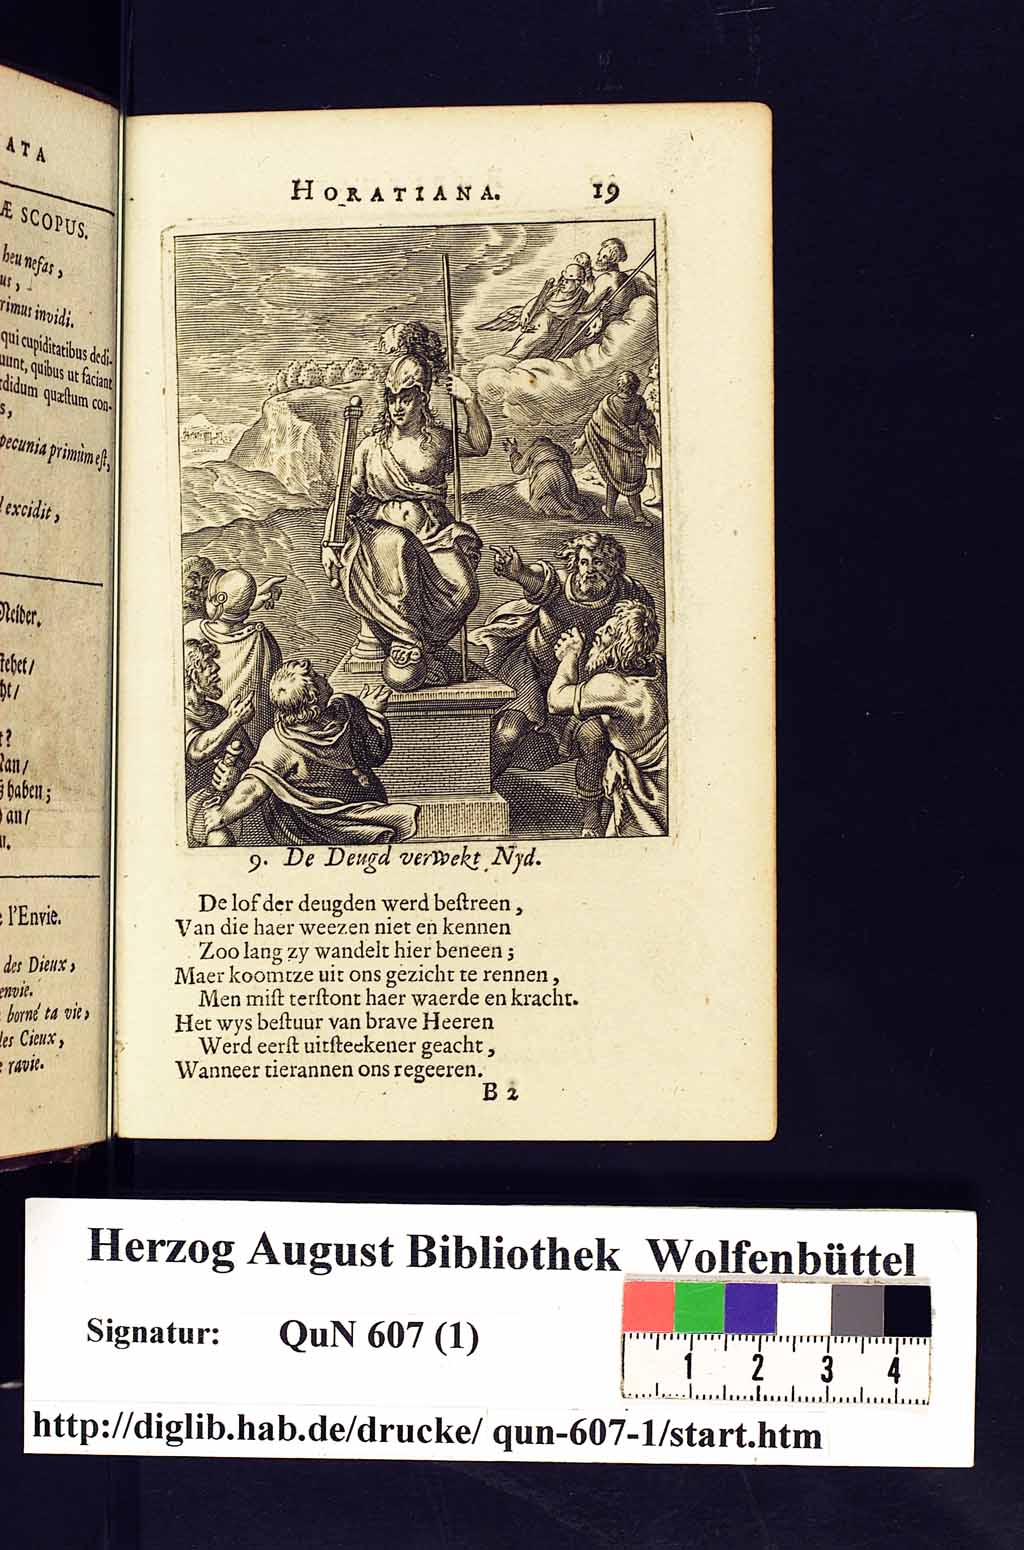 ATA
Æ SCOPUS.
heu nefas,
us,
rimus invidi.
qui cupiditatibus dedi-
uunt, quibus ut faciant
rdidum quæstum con-
s,
pecunia primùm est,
excidit,
Neider.
stehet/
ht/
t?
Man/
haben;
an/
n.
l'Envie.
des Dieux,
envie.
borné ta vie,
les Cieux,
ravie.
HORATIANA. 19
9. De Deugd verwekt Nyd.
De lof der deugden werd bestreen,
Van die haer weezen niet en kennen
Zoo lang zy wandelt hier beneen;
Maer koomtze uit ons gezicht te rennen,
Men mist terstont haer waerde en kracht.
Het wys bestuur van brave Heeren
Werd eerst uitsteekener geacht,
Wanneer tierannen ons regeeren.
B 2
Herzog August Bibliothek Wolfenbüttel
Signatur: QuN 607 (1)
1 2 3 4
http://diglib.hab.de/drucke/ qun-607-1/start.htm